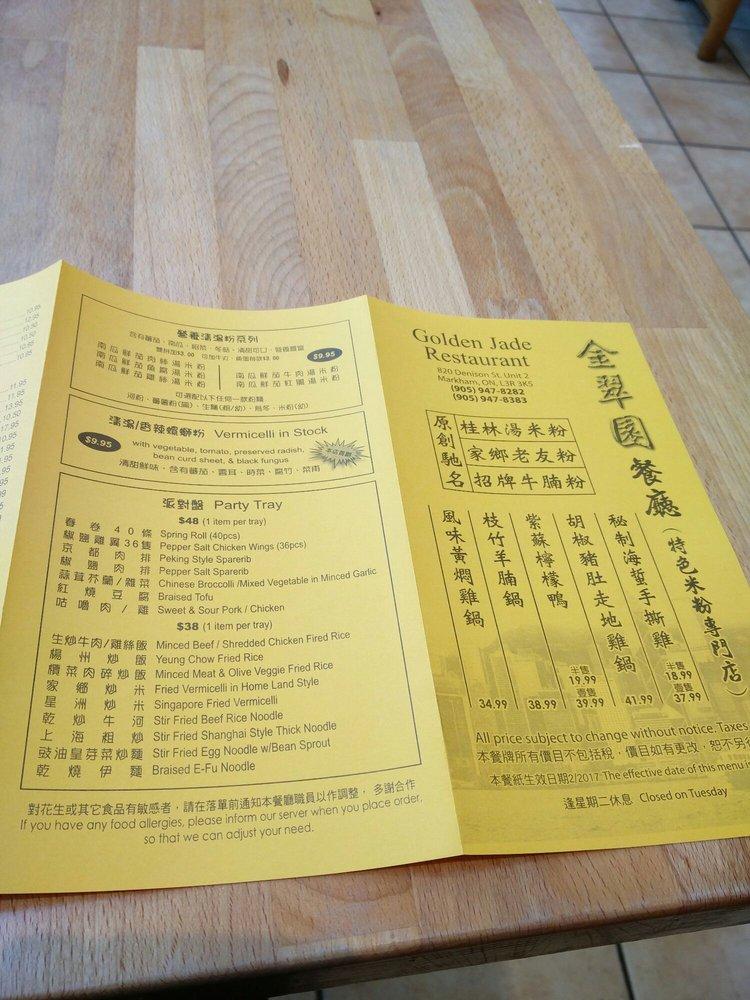 10.95
12.95
10.50
10.95
10.95
11.95
11.95
13.95
10.50
17.95
10.95
營養清湯粉系列
含有蕃茄、南瓜、
$9.95
南瓜鮮茄肉絲湯米粉
南瓜鮮茄魚腐湯米粉
南瓜鮮茄雞絲湯米粉
南瓜鮮茄牛肉湯米粉
南瓜鮮茄紅腸湯米粉
可選配以下任何一款粉麵
清湯/香辣螺螄粉 Vermicelli in Stock
$9.95
with vegetable, tomato, preserved radish,
bean curd sheet, & black fungus
清甜鮮味，含有蕃茄、雲耳、時菜、腐竹、菜甫
派對盤 Party Tray
$48 (1 item per tray)
春卷40條 Spring Roll (40pcs)
椒鹽雞翼36隻 Pepper Salt Chicken Wings (36pcs)
京都肉排 Peking Style Sparerib
椒鹽肉排 Pepper Salt Sparerib
蒜茸芥蘭/雜菜 Chinese Broccolli /Mixed Vegetable in Minced Garlic
紅燒豆腐 Braised Tofu
咕嚕肉/雞 Sweet & Sour Pork / Chicken
$38 (1 item per tray)
生炒牛肉/雞絲飯 Minced Beef / Shredded Chicken Fired Rice
楊州炒飯 Yeung Chow Fried Rice
欖菜肉碎炒飯 Minced Meat & Olive Veggie Fried Rice
家鄉炒米 Fried Vermicelli in Home Land Style
星洲炒米 Singapore Fried Vermicelli
乾炒牛河 Stir Fried Beef Rice Noodle
上海粗炒 Stir Fried Shanghai Style Thick Noodle
豉油皇芽菜炒麵 Stir Fried Egg Noodle w/Bean Sprout
乾燒伊麵 Braised E-Fu Noodle
對花生或其它食品有敏感者，請在落單前通知本餐廳職員以作調整， 多謝合作
If you have any food allergies, please inform our server when you place order,
so that we can adjust your need.
Golden Jade
Restaurant
820 Denison St. Unit 2
Markham, ON, L3R 3K5
(905) 947-8282
(905) 947-8383
金翠園餐廳（特色米粉專門店）
原創馳名
桂林湯米粉
家鄉老友粉
招牌牛腩粉
秘制海蜇手撕雞
半隻
18.99
壹隻
37.99
胡椒豬肚走地雞鍋
41.99
紫蘇檸檬鴨
半隻
19.99
壹隻
39.99
枝竹羊腩鍋
38.99
風味黃燜雞鍋
34.99
All price subject to change without notice. Taxes
本餐牌所有價目不包括稅，價目如有更改，恕不另
本餐紙生效日期2/2017 The effective date of this menu is
逢星期二休息 Closed on Tuesday